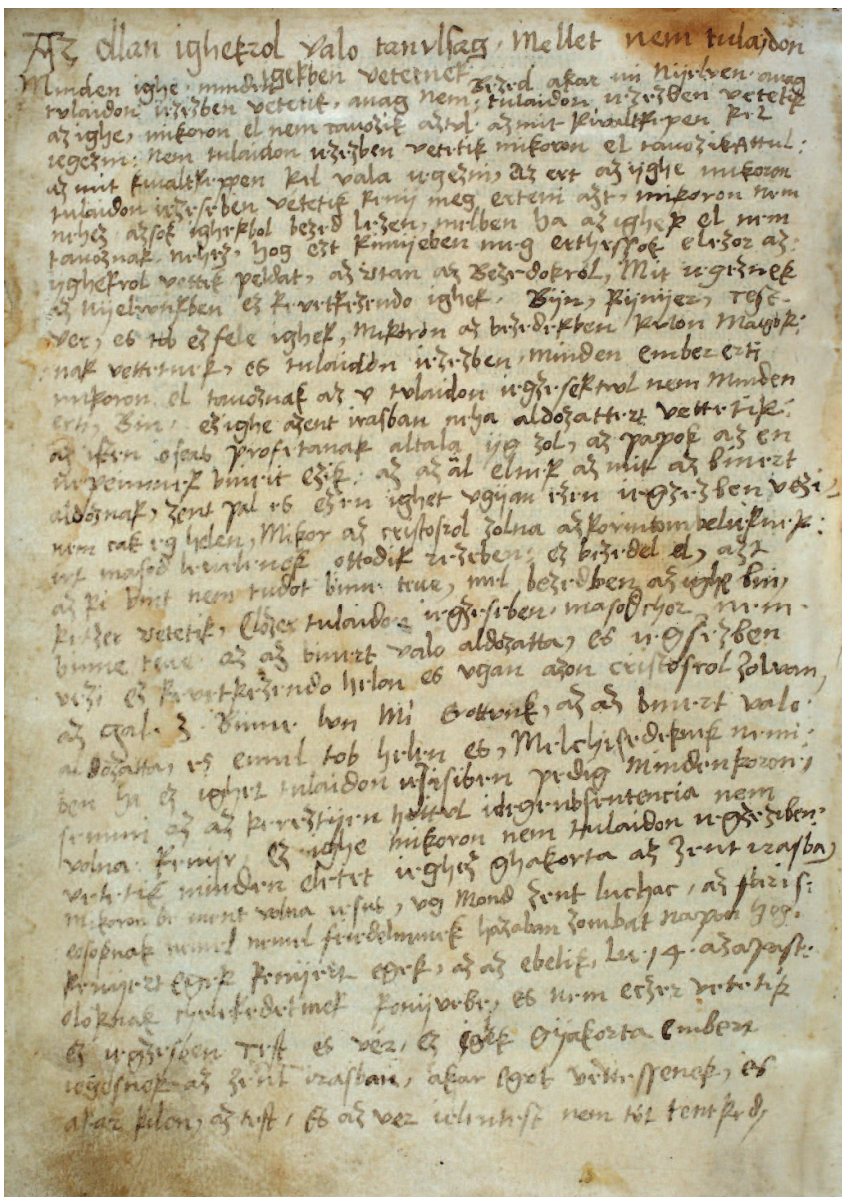 Az ollan ighekrol valo tanvlsag, Mellet nem tulaidon
igekben vetetnek
Minden ighe, mindē Bezed akar mi Nijelven, avag
tvlaidon iezezben vetetik, avag nem tulaidon iezezben vetetik
az ighe, mikoron el nem tavozik aztvl azmit kivaltkepen kel
iegezni: Nem tulaidon iezezben vetetik mikoron el tavozik attul:
az mit kivaltkeppen kel vala iegezni, Az ert az ighe mikoron
tulaidon iezeseben vetetik keny meg erteni azt, mikoron nem
nehez azsok ighekbol bezed lezen, melben ha az ighek el nem
tavoznak nehez, hog ezt kunijeben meg erthessök elezor az
ijghekrol vettik peldat, az vtan az Bezedokröl, Mit iegeznek
az nijelvunkben ez kevetkezendo ighek. Bijn, kijnijer, Test
ver, es tob ezfele ighek, Mikoron az bezedekben kilon Magok:
nak vettetnek, es tulaidon iezezben, minden ember erti
mikoron el tavoznak az v tvlaidon iegzesektvl nem Minden
erti, Bin, ez ighe azent irasban neha aldozattert vettetik:
az iten oseas profetanak altala ijg zol, az papok az en
nepemnek bineit ezik: az az äl elnek az mit az binert
aldoznak, zent pal es ezen ighet vgijan ezen iegzezben vezi
nem cak eg helen, Mikor az cristosrol zolna azkorintombelieknek:
irt masod levelenek ottodik rezeben: ez bezedel el, azt
az ki bint nem tudot binne teve, mel bezedben az ighe bin,
ketzer vetetik, Elözer tulaidon iegzeseben, masodzor nem
binne teve az az binert valo aldozatta, es iegsezben
vezi ez kevetkezendo helen es vgan azon cristosrol zolvan,
az Gal. 3. Binne lön Mi Erettvnk, az az binert valo
aldozatta, es ennel tob helen es, Melchisedeknek nemi
ben ha ez ighet tulaidon iezisiben pedig mindenkoron
semmi az az kereztijen hittvl idegenbsentencia nem
volna kenijr Ez ighe mikoron nem tulaidon iegzezben
vetetik minden eletet ieghez ghakorta az zent irasba,
mikoron be ment volna iesus, vg Mond zent luchac, az faris:
eosoknak nemel nemel feiedelminek hazaban zombat napon hog
kenijert egek kenijert egek, az az ebelik, Lu. 14. az apast:
oloknak cheleked etinek konijvebe, es nem eczer vetetik
ez iegzesben Test es ver, Ez igek gijakorta Embert
iegosnek az zent irasban, akar egot vettessenek, es
akar kilon, az test, Es az ver ielentest nem tot tent ked,